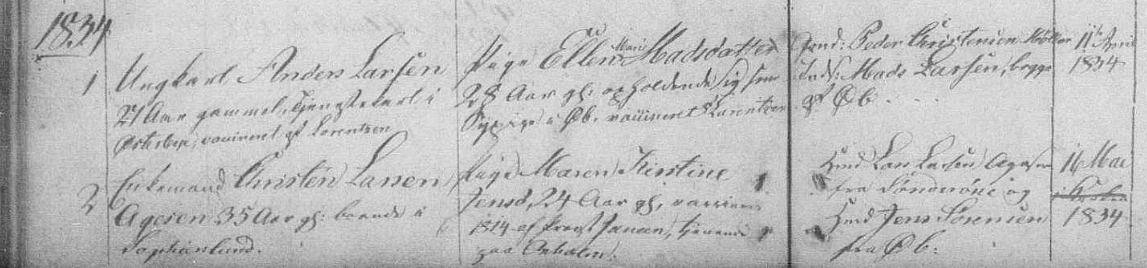 1834
1
Ungkarl Anders Larsen
27 Aar gammel, Tjenestekarl i
vaccineret af Lorentzen
Pige Ellen Marie Madsdatter
28 Aar gl: opholdende sig som
Sypige i Øb. vaccineret Lorentzen
Gmd: Peder Christensen Møller
Inds: Mads Larsen, begge
af Øb.
11te April
1834
2
Enkemand Christen Larsen
Agersen 35 Aar gl: boende i
Sophienlund.
Pige Maren Kirstine
Jensd, 24 Aar gl, vaccineret
1814 af Provst Jansen, tjenende
paa
Huusmd Lars Larsen Agersen
fra Sønderöne og
Huusmd Jens Sörensen
fra Øb:
16 Mai
1834.